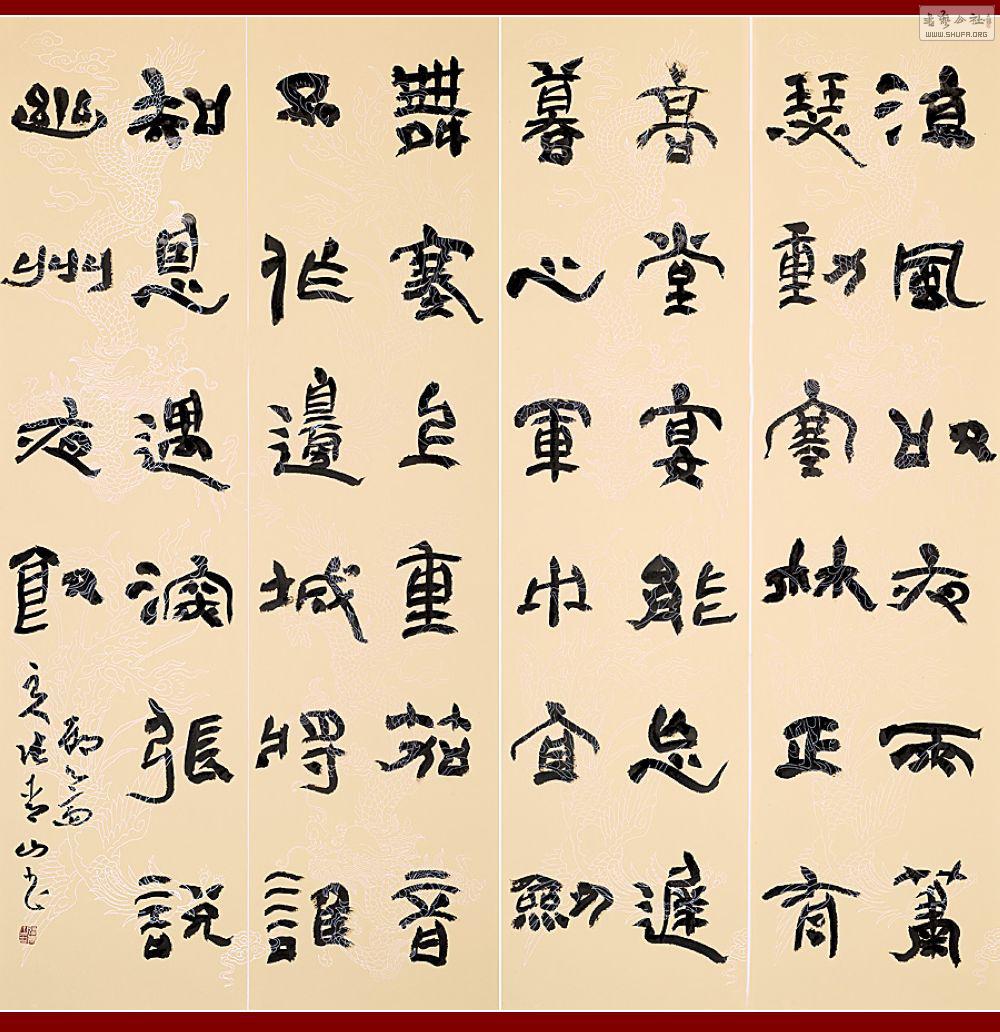 涼風吹夜雨蕭
瑟動寒林正有
高堂宴能忘遲
暮心軍中宜劍
舞塞上重笳音
不作邊城將誰
知恩遇深張說
幽州夜飲
青山书
书艺公社
WWW.SHUFA.ORG